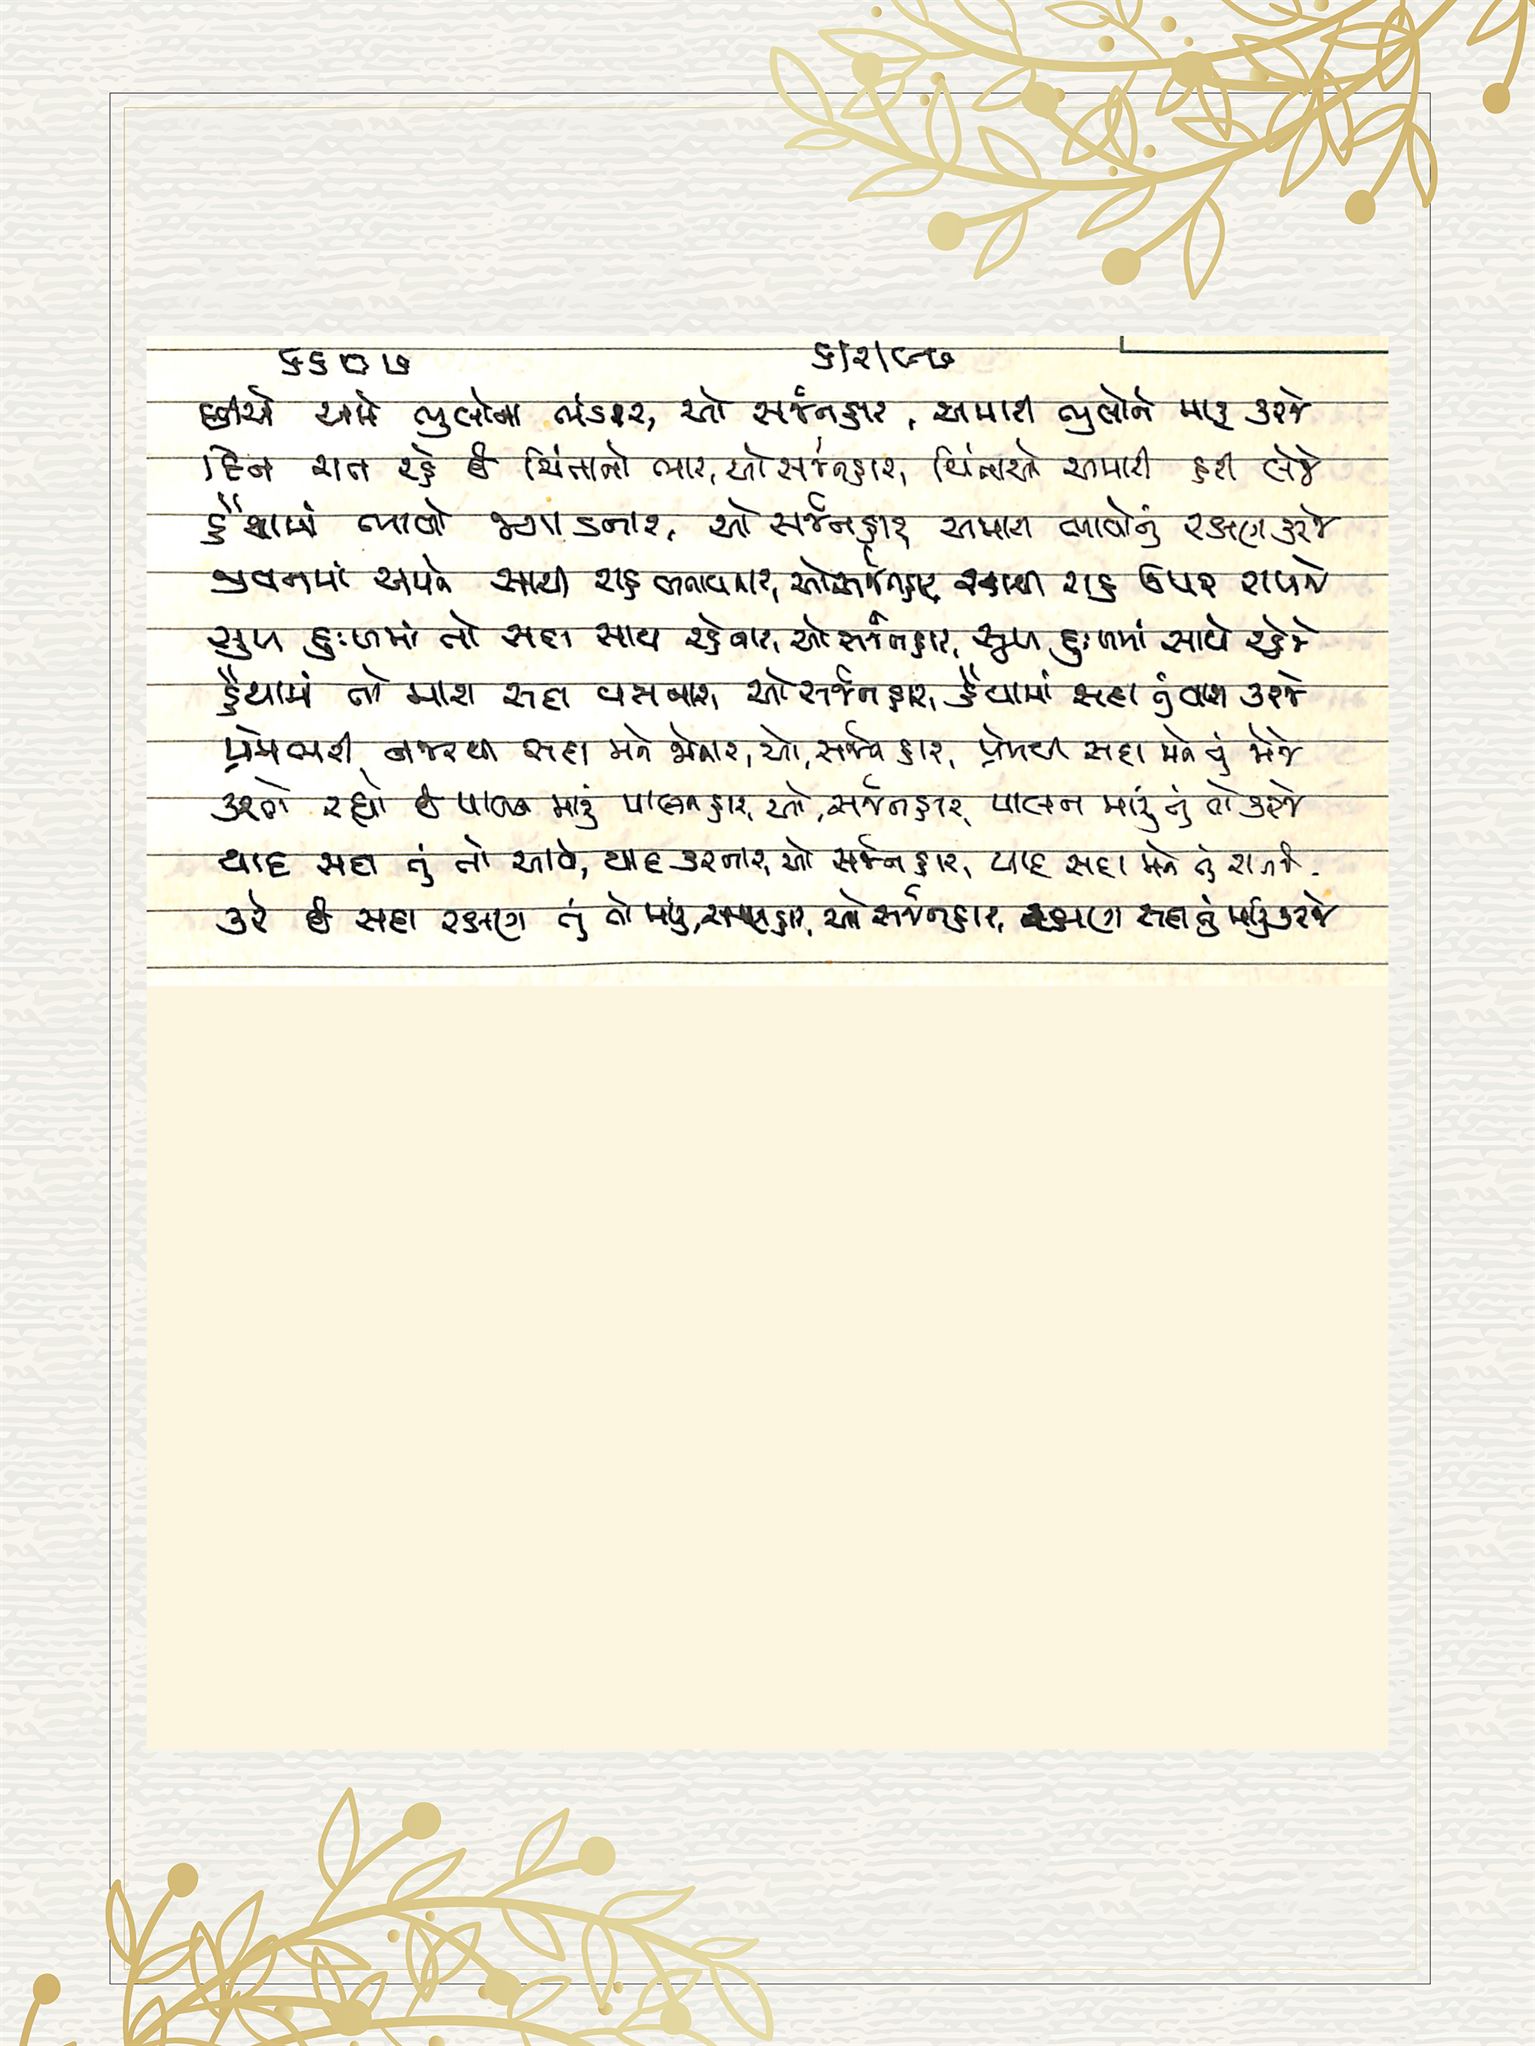 ૬૬૦૭ ૬/૨/૯૭
છીએ અમે ભુલોના ભંડાર, ઓ સર્જનહાર, અમારી ભુલોને માફ કરજે
દિન રાત રહે છે ચિંતાનો ભાર, ઓ સર્જનહાર, ચિંતાઓ અમારી હરી લેજે
હૈયામાં ભાવો જગાડનાર, ઓ સર્જનહાર, અમારા ભાવોનું રક્ષણ કરજે
જીવનમાં અમને સાચી રાહ બતાવનાર, ઓ સર્જનહાર, સાચી રાહ ઉપર રાખજે
સુખ દુઃખમાં તો સદા સાથ રહેનાર, ઓ સર્જનહાર, સુખ દુઃખમાં સાથે રહેજે
હૈયામાં તો મારા સદા વસનાર, ઓ સર્જનહાર, હૈયામાં સદા તું વાસ કરજે
પ્રેમભરી નજરથી સદા મને જોનાર, ઓ, સર્જનહાર, પ્રેમથી સદા મને તું જોજે
કરતો રહ્યો છે પાલન મારું પાલનહાર, ઓ, સર્જનહાર, પાલન મારું તું તો કરજે
યાદ સદા તું તો આવે, યાદ કરનાર, ઓ સર્જનહાર, યાદ સદા મને તું રાખજે.
કરે છે સદા રક્ષણ તું તો બધું, ઓ સર્જનહાર, રક્ષણ સદા તું કરજે